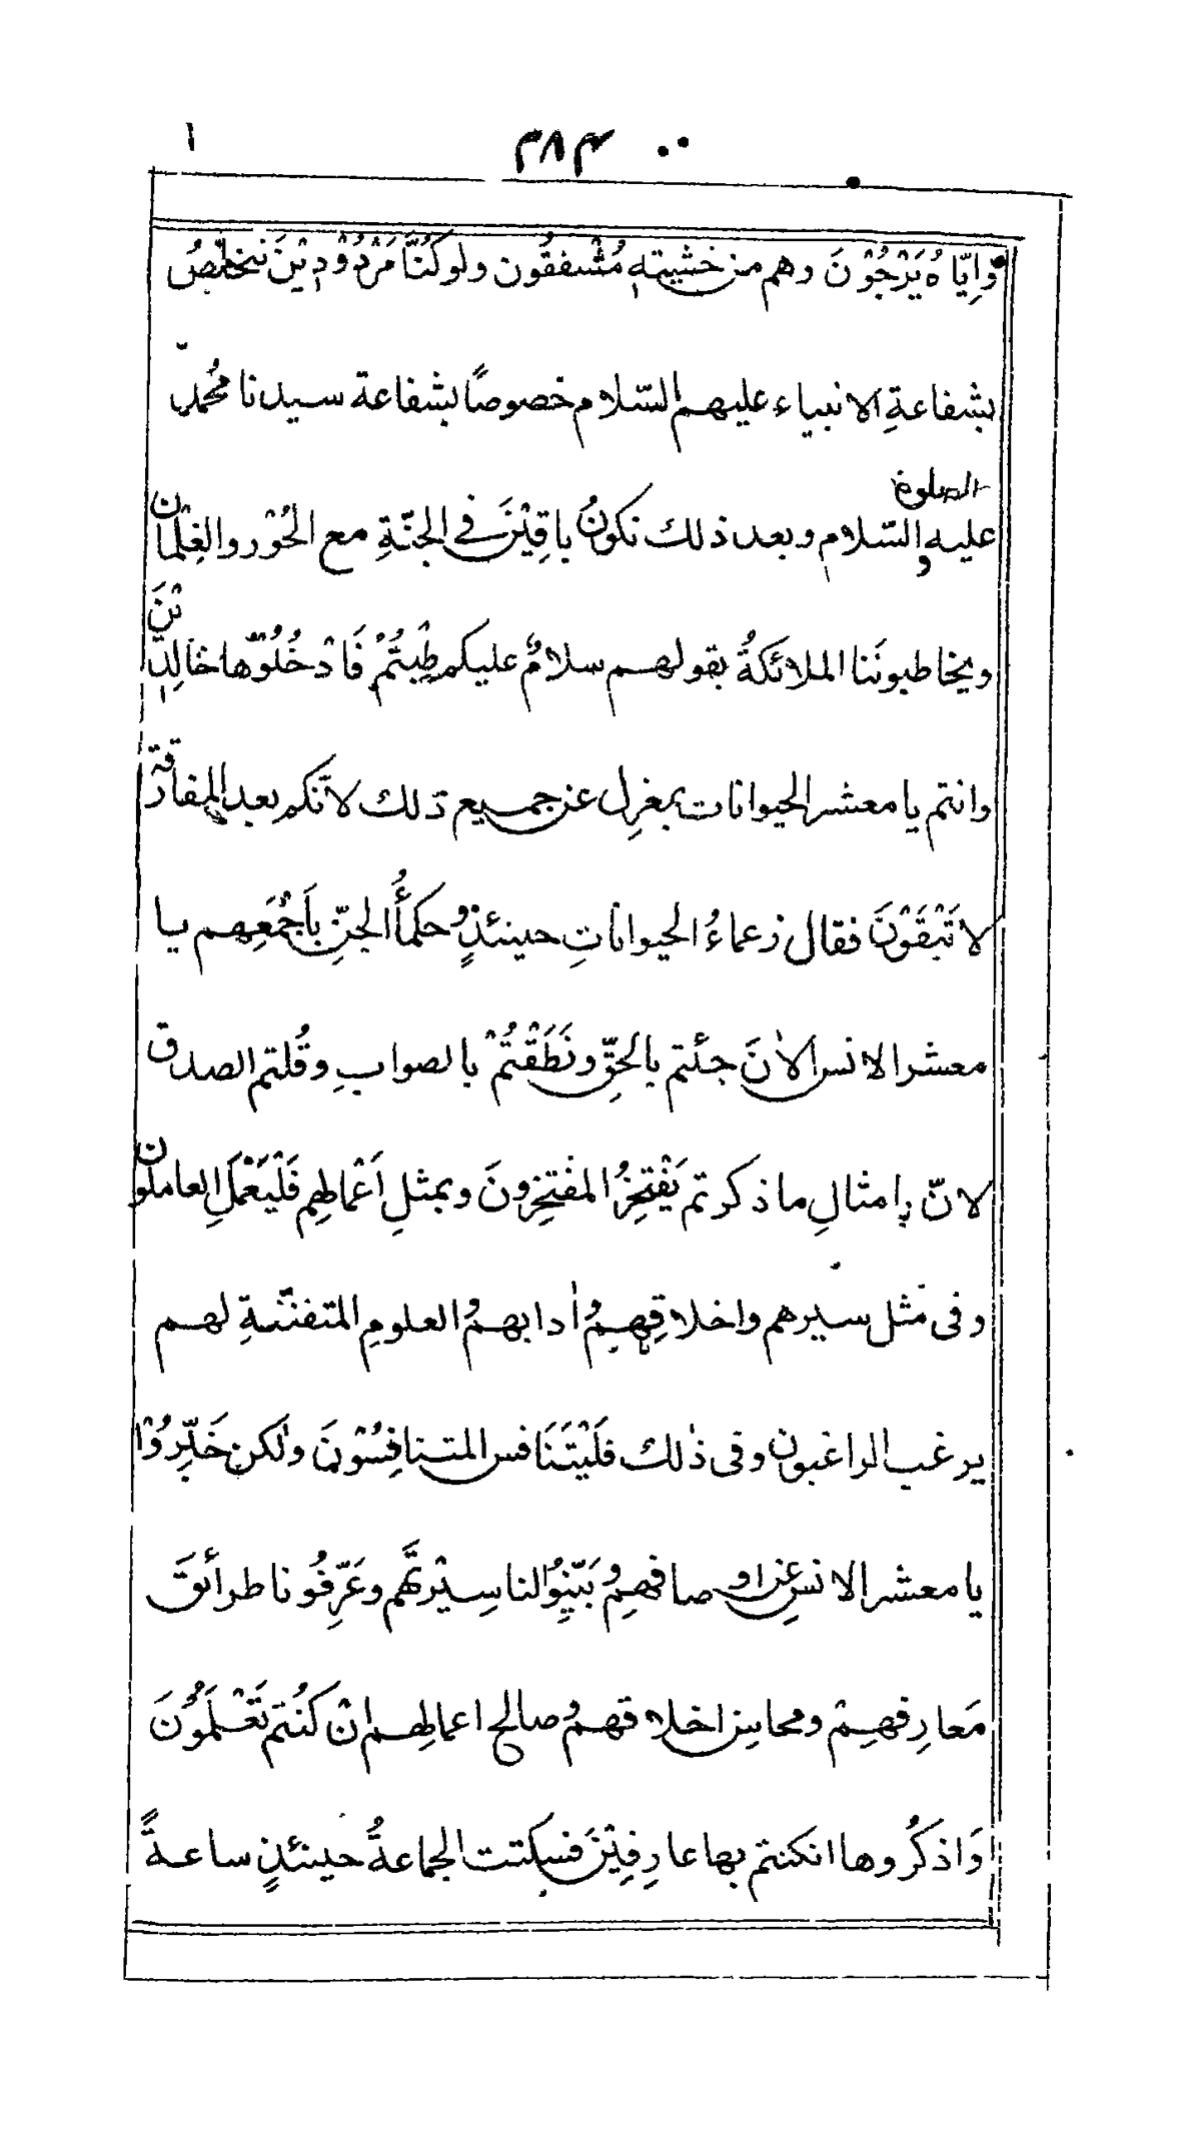 ٣٨٤
١
وَاِيَّاهُ يَرْجُوْنَ وهم من خشيتهٖ مُشْفقُون ولو كُنَّا مَرْدُوْدِيْنَ نتخلّصُ
بشفاعةِ الانبياء عليهم السّلام خصوصًا بشفاعة سيدنا محُمّدٍ
عليه الصلوة والسّلام وبعد ذلك نكونُ باقِيْنَ في الجنّةِ مع الحُوْر والغِلْمان
ويخاطبونَنا الملائكةُ بقولهم سلامٌ عليكم طِبْتُمْ فَادْخُلُوْها خالِدِيْنَ
وانتم يا معشر الحيوانات بمغزِل عن جميع ذلك لانّكم بعد المفارقة
لا تَبْقَوْنَ فقال زعماءُ الحيواناتِ حينئذٍ وحكمأُ الجنِّ باَجْمَعِهم يا
معشر الانس الاٰنَ جئتم بالحقِّ ونَطَقْتُمْ بالصوابِ وقُلتم الصدق
لانّ بامثالِ ما ذكرتم يَفْتخِرُ المفتخِرونَ وبمثلِ اَعْمالِهم فَلْيَعْمَلِ العاملون
وفى مثل سيرهم واخلاقِهِمْ واٰدابهم والعلومِ المتفنّنةِ لهم
يرغب الراغبون وفى ذٰلك فلَيْتَنَافس المتنافِسُوْنَ ولٰكن خَبِّرُوْنا
يا معشر الانسِ عن اوصافهِم وبَيّنُوا لنا سِيْرتَهم وعَرِّفُونا طرأئقَ
مَعارِفهِمْ ومحاسِن اخلاقهم وصالح اعمالِهم انْ كنُتم تَعْلَمُوْنَ
وَاذكرُوها انكنتم بها عارِفِيْنَ فسكتت الجماعةُ حينئذٍ ساعةً